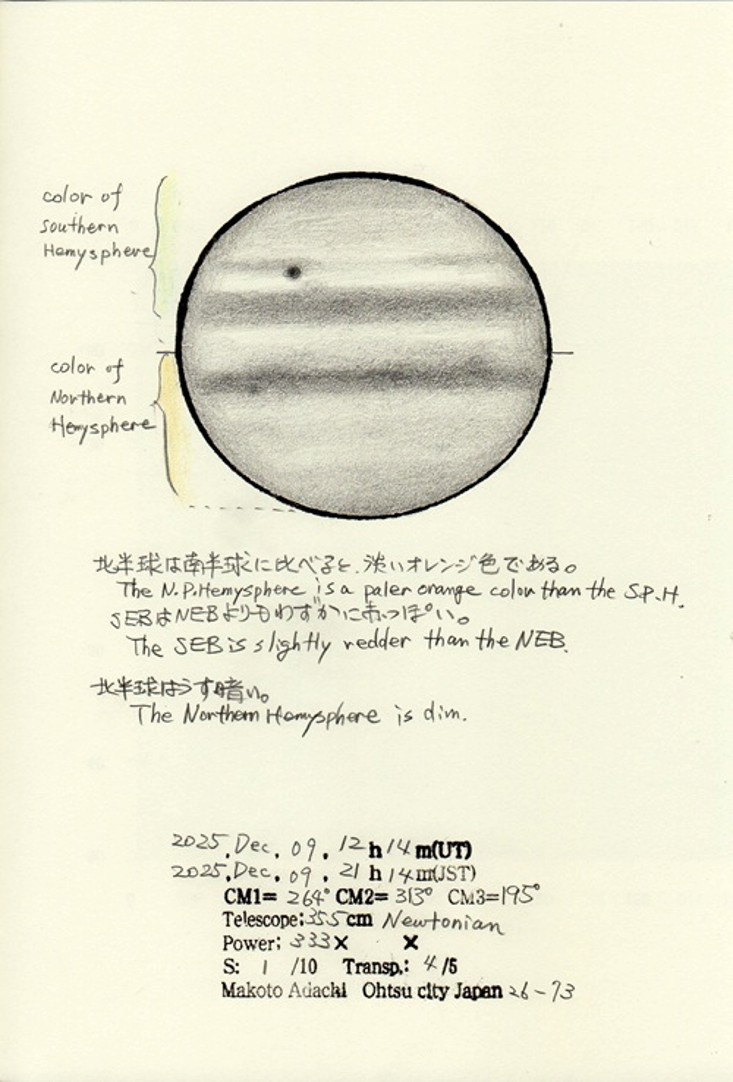 color of
Southern
Hemysphere
color of
Northern
Hemysphere
北半球は南半球に比べると、淡いオレンジ色である。
The N.P.Hemysphere is a paler orange colou than the S.P.H.
SEBはNEBよりもわずかに赤っぽい。
The SEB is slightly redder than the NEB.
北半球はうす暗い。
The Northern Hemysphere is dim.
2025.Dec. 09. 12h 14m(UT)
2025.Dec. 09. 21h 14m(JST)
CM1= 264° CM2= 313° CM3=195°
Telescope:35.5cm Newtonian
Power: 333× ×
S: 1 /10 Transp.: 4/5
Makoto Adachi Ohtsu city Japan 26-73